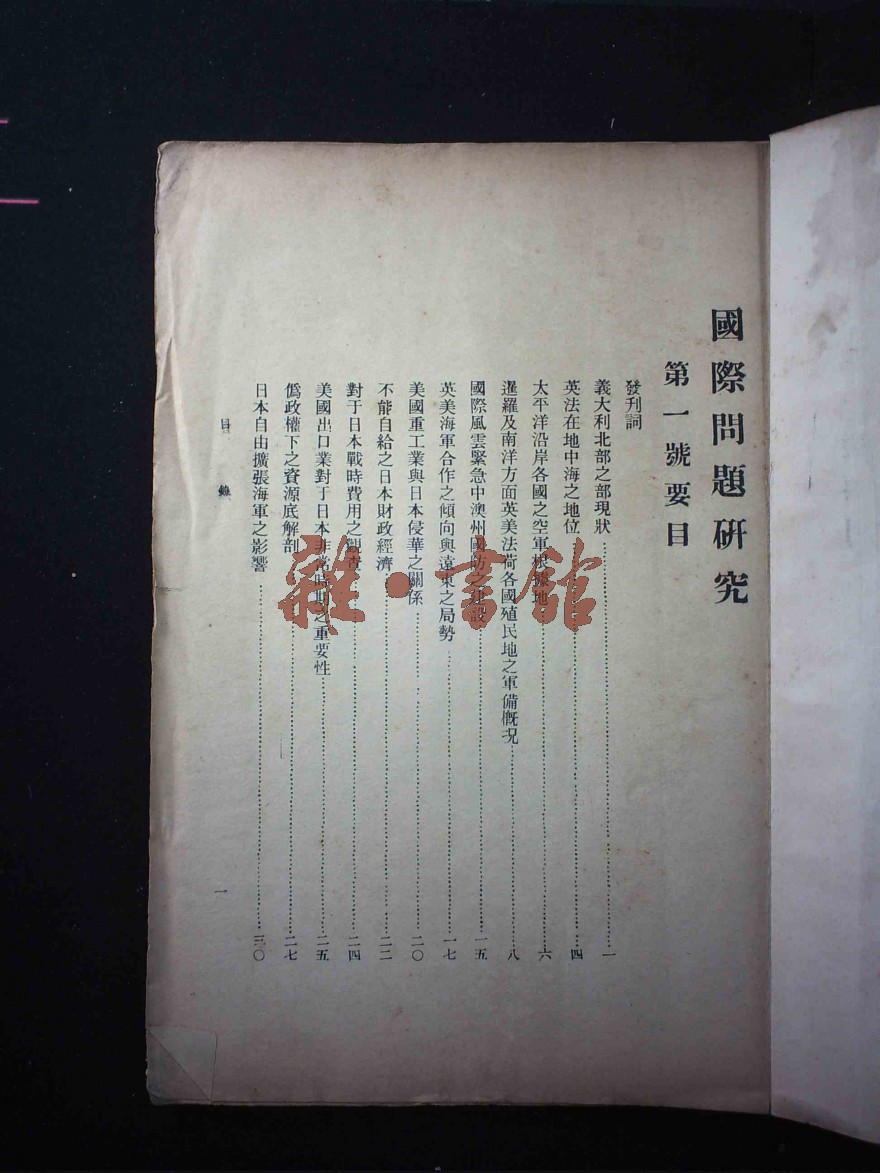 國際問題研究
第一號要目
發刊詞
義大利北部之部現狀……一
英法在地中海之地位……四
太平洋沿岸各國之空軍根據地……六
暹羅及南洋方面英美法荷各國殖民地之軍備概況……八
國際風雲緊急中澳州國防之建設……一五
英美海軍合作之傾向與遠東之局勢……一七
美國重工業與日本侵華之關係……二〇
不能自給之日本財政經濟……二二
對于日本戰時費用之觀查……二四
美國出口業對于日本非常時期之重要性……二五
僞政權下之資源底解剖……二七
日本自由擴張海軍之影響……三〇
目錄
一
雜·書館